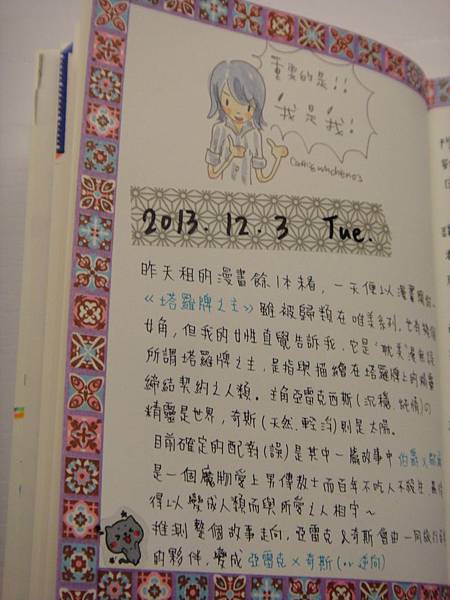 重要的是!!
"我是我!
2013.12.3 Tue.
昨天租的漫畫餘1本未看，一天便以漫畫開始。
《塔羅牌之主》雖被歸類在唯美系列，也有
女角，但我的女性直覺告訴我，它是"耽美"漫無誤
所謂塔羅牌之主，是指與描繪在塔羅牌上的精靈
締結契約之人類。主角亞雷克西斯(沉穩、純情)の
精靈是世界，奇斯(天然、輕浮)則是太陽。
目前確定的配對(誤)是其中一篇故事中伯爵×
是一個魔物愛上男傳教士而百年不吃人不殺生
得以變成人類而與所愛之人相守～
推測整個故事走向，亞雷克&奇斯會由一同旅行
的夥伴，變成亞雷克×奇斯(or逆向)